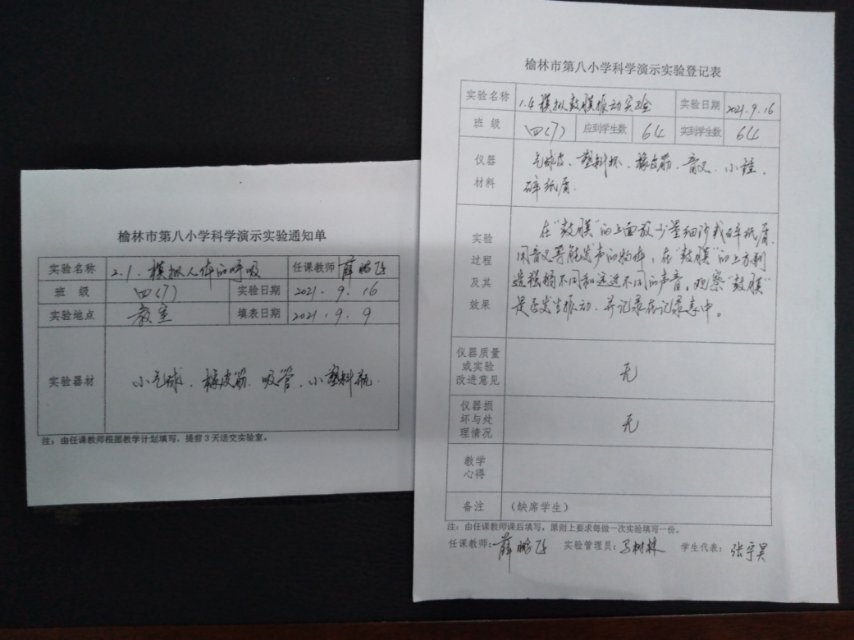 榆林市第八小学科学演示实验通知单
实验名称 2.1.模拟人体的呼吸 任课教师 薛鹏飞
班 级 四(7) 实验日期 2021.9.16
实验地点 教室 填表日期 2021.9.9
实验器材 小气球、橡皮筋、吸管、小塑料瓶
注:由任课教师根据教学计划填写,提前3天送交实验室。
榆林市第八小学科学演示实验登记表
实验名称 1.4模拟鼓膜振动实验 实验日期 2021.9.16
班 级 四(7) 应到学生数 64 实到学生数 64
仪器
材料
气球皮、塑料杯、橡皮筋、音叉、小锤、
碎纸屑.
实验
过程
及其
效果
在“鼓膜”的上面放少量细沙或碎纸屑
用音叉等能发声的物体,在“鼓膜”的上方制
造强弱不同和远近不同的声音。观察“鼓膜”
是否发生振动,并记录在记录表中。
仪器质量
或实验
改进意见
无
仪器损
坏与处
理情况
无
教学
心得
备注 (缺席学生)
注:由任课教师课后填写,原则上要求每做一次实验填写一份。
任课教师:薛鹏飞 实验管理员:树林 学生代表:张宇昊